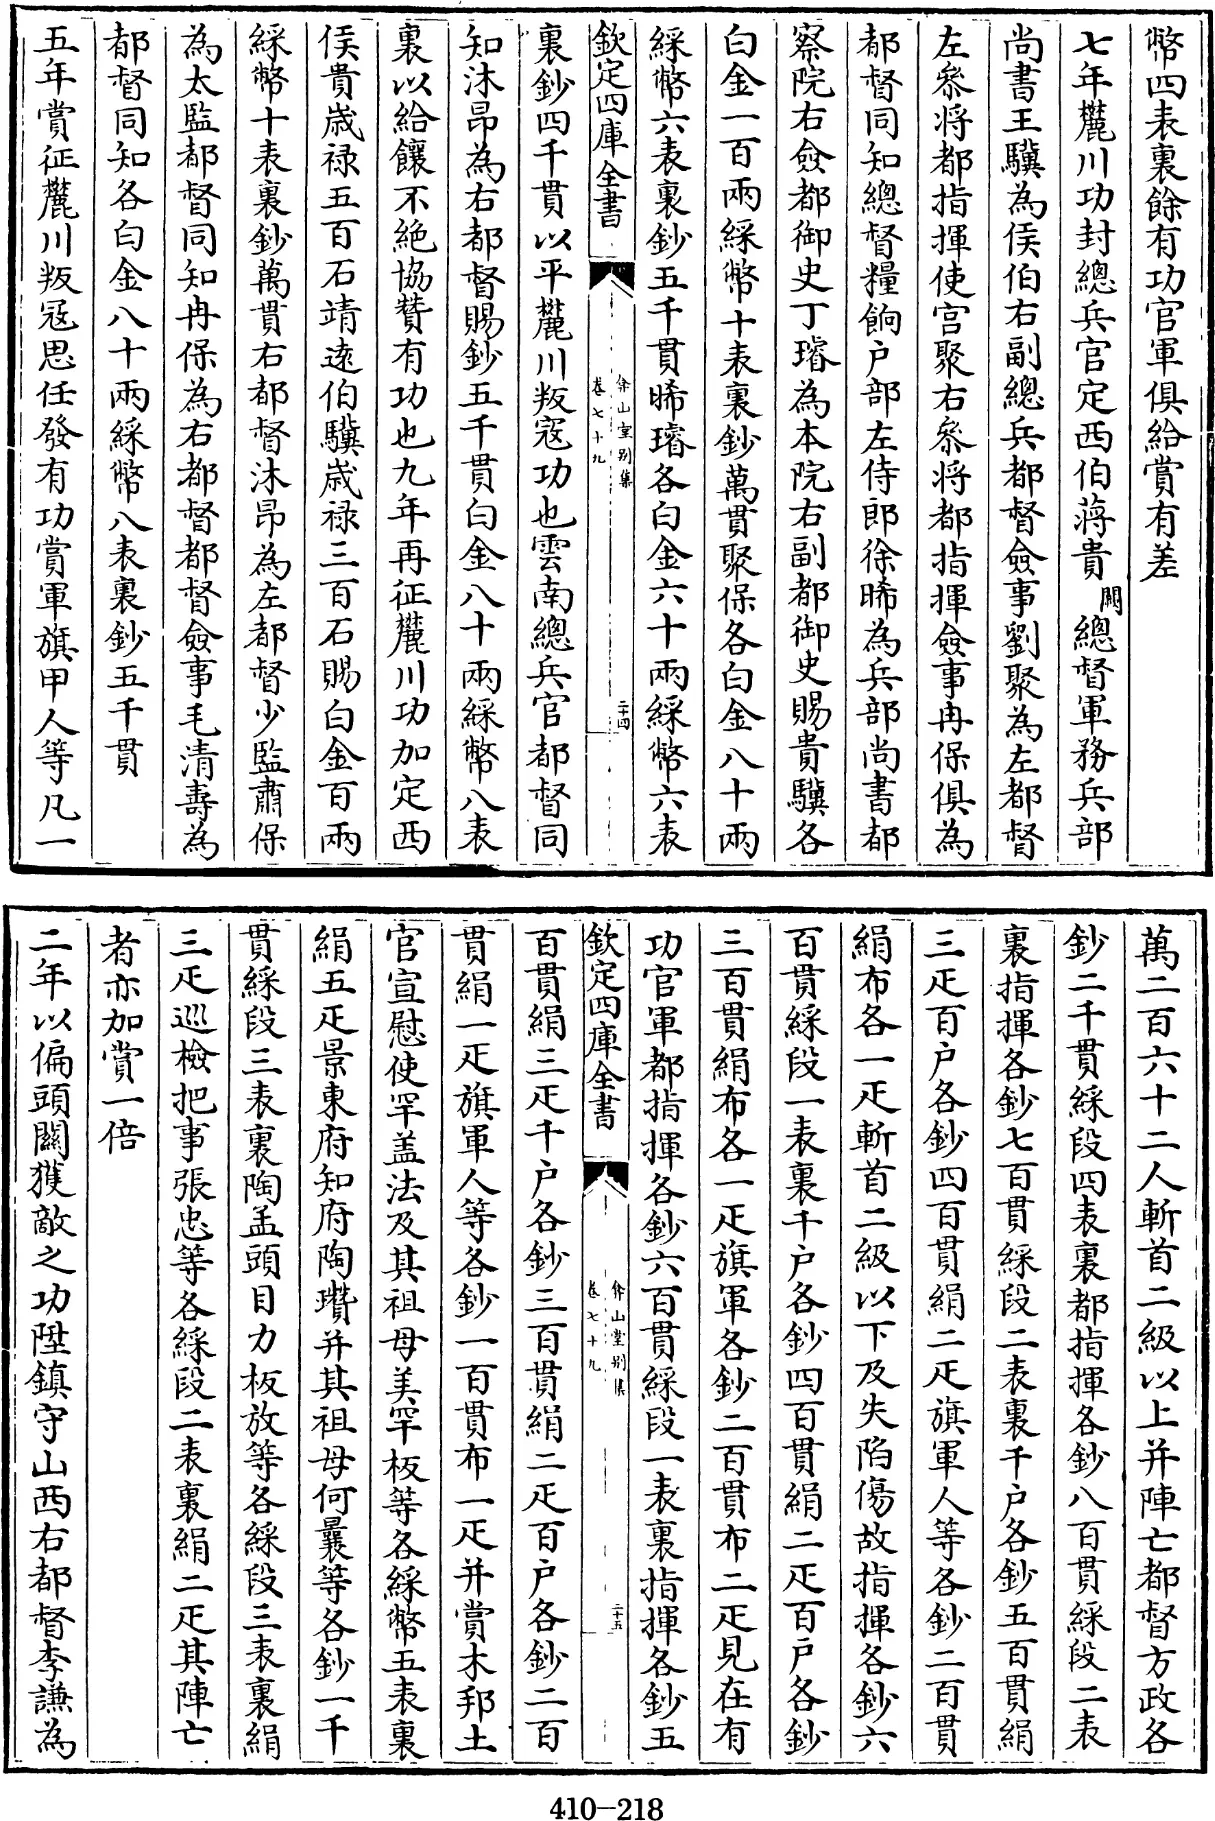 幣四表裏餘有功官軍俱給賞有差
七年麓川功封總兵官定西伯蔣貴闕總督軍務兵部
尚書王驥為侯伯右副總兵都督僉事劉聚為左都督
左叅將都指揮使宫聚右叅將都指揮僉事冉保俱為
都督同知總督糧餉户部左侍郎徐晞為兵部尚書都
察院右僉都御史丁璿為本院右副都御史賜貴驥各
白金一百兩綵幣十表裏鈔萬貫聚保各白金八十兩
綵幣六表裏鈔五千貫晞璿各白金六十兩綵幣六表
欽定四庫全書
弇山堂别集
卷七十九
二十四
裏鈔四千貫以平麓川叛寇功也雲南總兵官都督同
知沐昂為右都督賜鈔五千貫白金八十兩綵幣八表
裏以給饟不絶協賛有功也九年再征麓川功加定西
侯貴歲禄五百石靖逺伯驥歲禄三百石賜白金百兩
綵幣十表裏鈔萬貫右都督沐昂為左都督少監蕭保
為太監都督同知冉保為右都督都督僉事毛清壽為
都督同知各白金八十兩綵幣八表裏鈔五千貫
五年賞征麓川叛寇思任發有功賞軍旗甲人等凡一
萬二百六十二人斬首二級以上并陣亡都督方政各
鈔二千貫綵段四表裏都指揮各鈔八百貫綵段二表
裏指揮各鈔七百貫綵段二表裏千户各鈔五百貫絹
三疋百户各鈔四百貫絹二疋旗軍人等各鈔二百貫
絹布各一疋斬首二級以下及失陷傷故指揮各鈔六
百貫綵段一表裏千户各鈔四百貫絹二疋百户各鈔
三百貫絹布各一疋旗軍各鈔二百貫布二疋見在有
功官軍都指揮各鈔六百貫綵段一表裏指揮各鈔五
欽定四庫全書
弇山堂别集
卷七十九
二十五
百貫絹三疋千户各鈔三百貫絹二疋百户各鈔二百
貫絹一疋旗軍人等各鈔一百貫布一疋并賞木邦土
官宣慰使罕盖法及其祖母美罕板等各綵幣五表裏
絹五疋景東府知府陶瓚并其祖母何曩等各鈔一千
貫綵段三表裏陶孟頭目力板放等各綵段三表裏絹
三疋巡檢把事張忠等各綵段二表裏絹二疋其陣亡
者亦加賞一倍
二年以偏頭關獲敵之功陞鎮守山西右都督李謙為
410-218